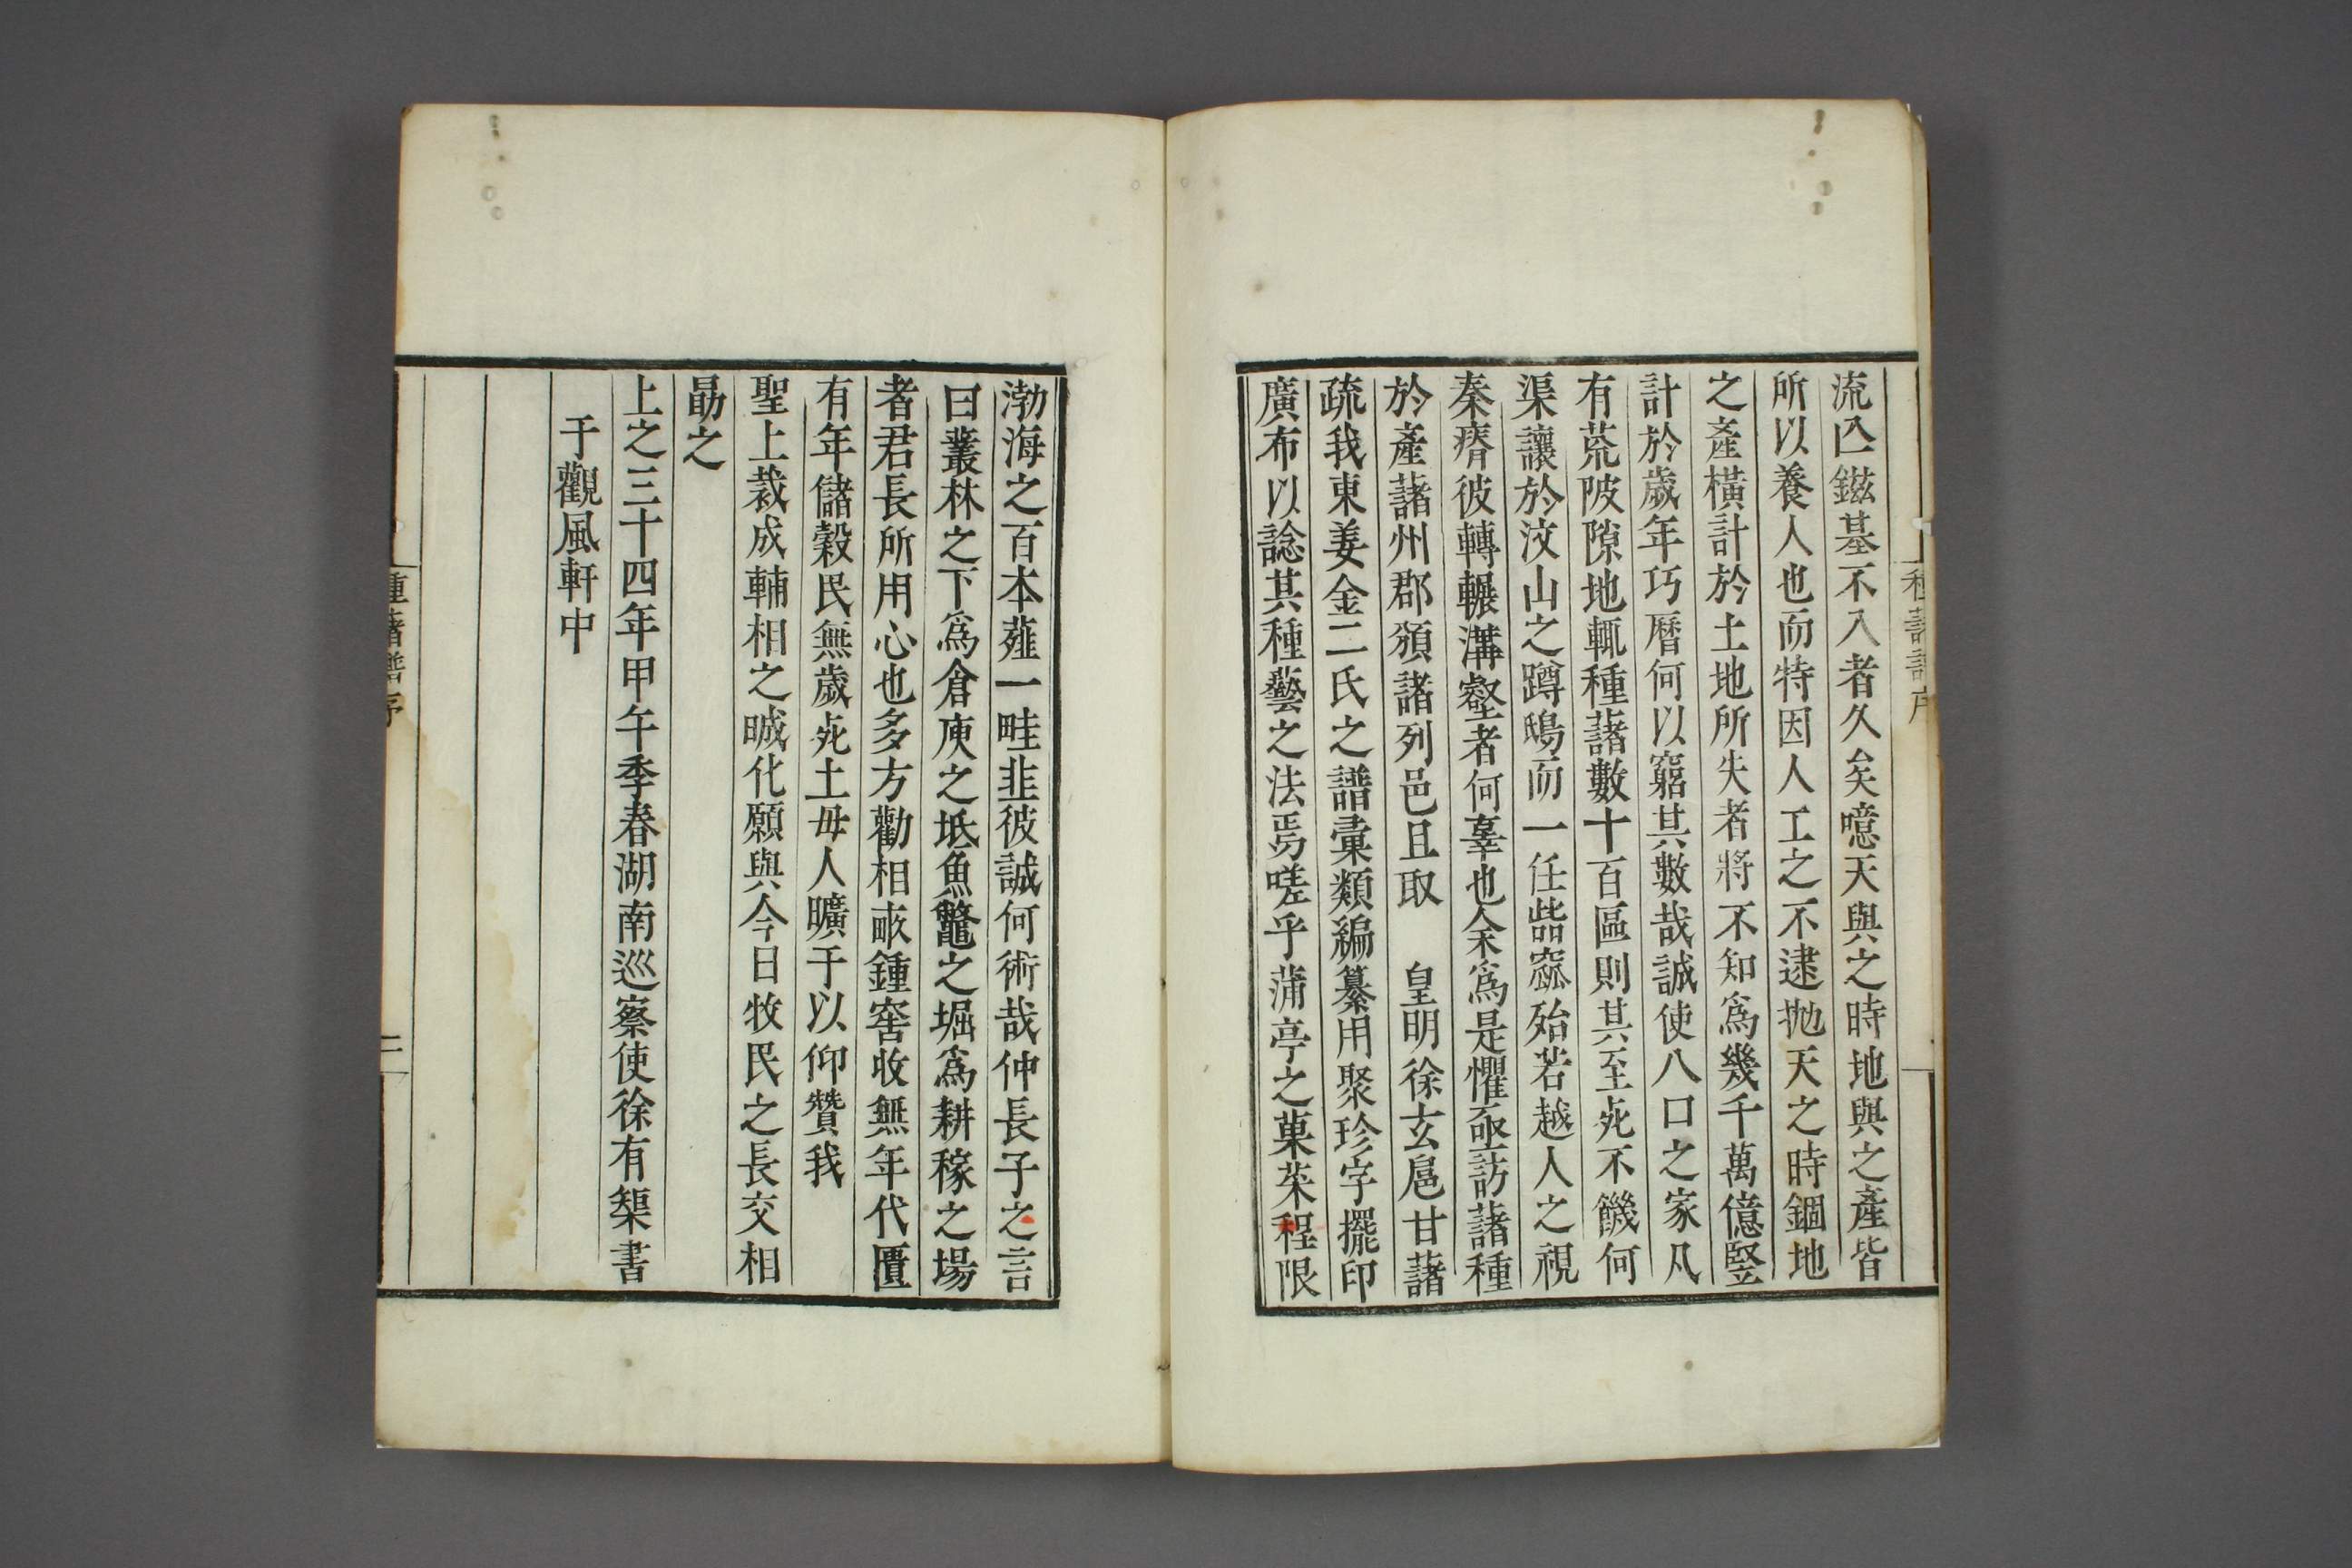 種藷譜序
流亾鎡基不入者久矣噫天與之時地與之產皆
所以養人也而特因人工之不逮抛天之時錮地
之產橫計於土地所失者將不知爲幾千萬億竪
計於歲年巧曆何以窮其數哉誠使八口之家凡
有荒陂隙地輒種藷數十百區則其至死不饑何
渠讓於汶山之蹲鴟而一任呰窳殆若越人之視
秦瘠彼轉輾溝壑者何辜也余爲是懼亟訪藷種
於產藷州郡頒諸列邑且取　皇明徐玄扈甘藷
疏我東姜金二氏之譜彙類編纂用聚珍字擺印
廣布以諗其種藝之法焉嗟乎蒲亭之菓菜程限
渤海之百本薤一畦韭彼誠何術哉仲長子之言
曰叢林之下爲倉庾之坻魚鼈之堀爲耕稼之場
者君長所用心也多方勸相畞鍾窖收無年代匱
有年儲穀民無歲死土毋人曠于以仰贊我
聖上裁成輔相之諴化願與今日牧民之長交相
勗之
上之三十四年甲午季春湖南巡察使徐有榘書
于觀風軒中
種藷譜序
二